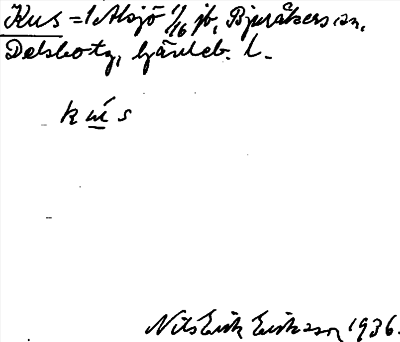 Kus = 1 Alsjö 1/16 jb, Bjuråkers sn,
Delsbo tg, Gävleb. l.
kùs
Nils Erik Eriksson 1936.